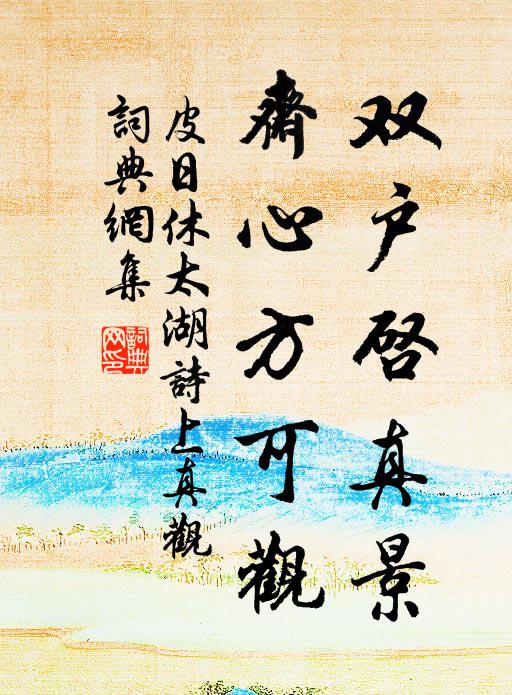 双户启真景
齋心方可觀
皮日休太湖詩上真觀
詞典網集
詞典網印